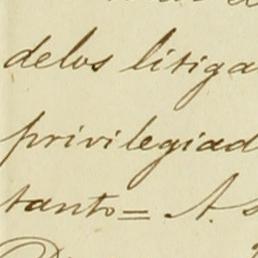 delos litiga
privilegiad
tanto = A. s